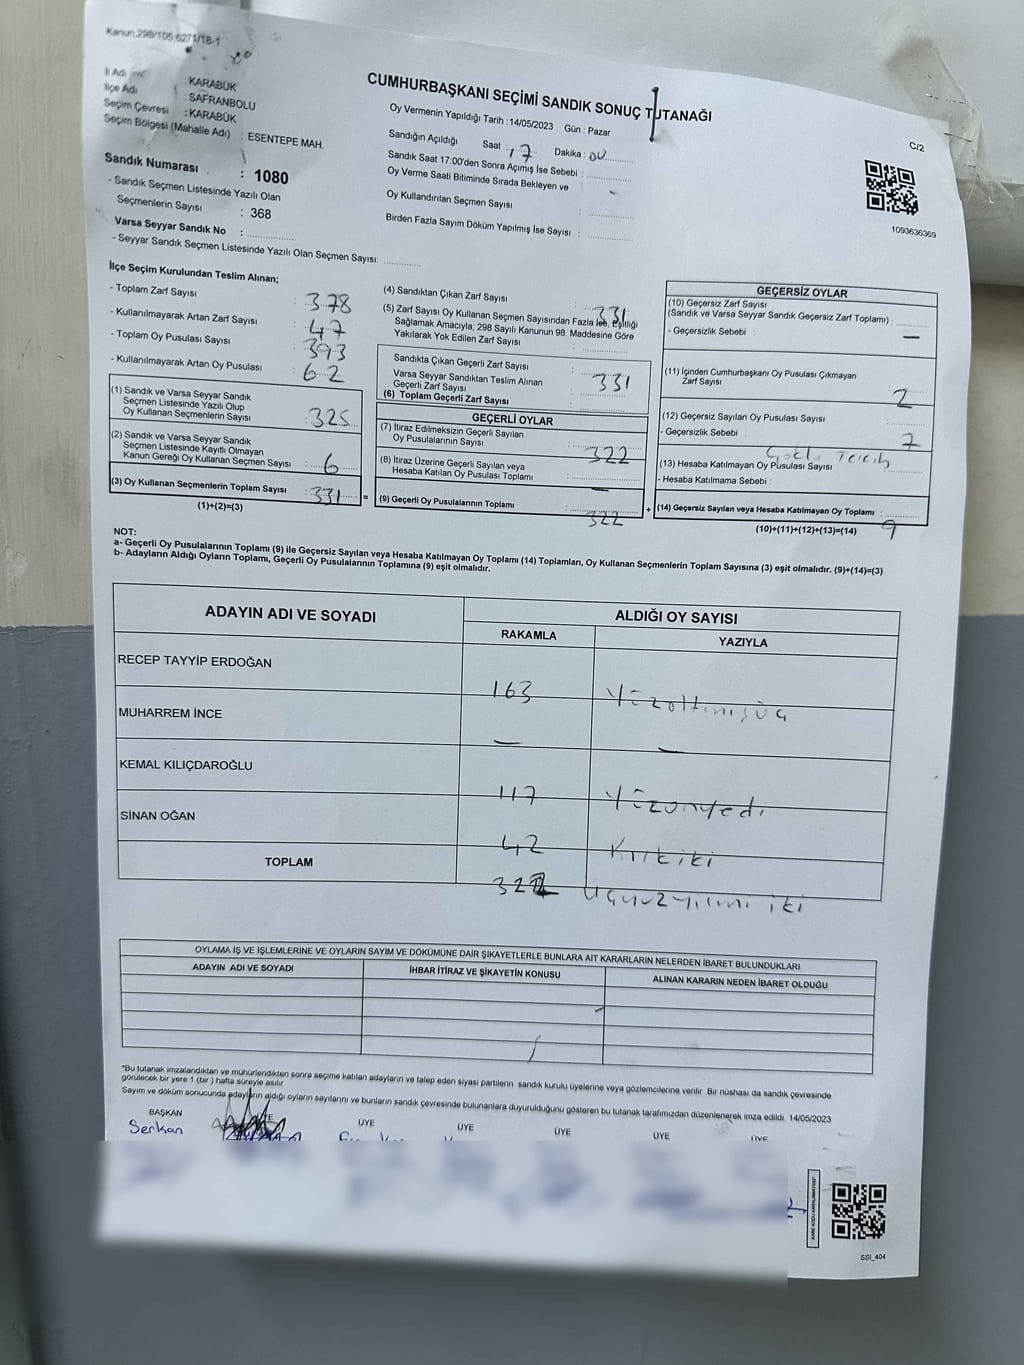 Kanun:298/105;6271/18-1
İl Adı : KARABÜK
İlçe Adı : SAFRANBOLU
Seçim Çevresi : KARABÜK
Seçim Bölgesi (Mahalle Adı) : ESENTEPE MAH.
Sandık Numarası : 1080
- Sandık Seçmen Listesinde Yazılı Olan
Seçmenlerin Sayısı : 368
Varsa Seyyar Sandık No :
- Seyyar Sandık Seçmen Listesinde Yazılı Olan Seçmen Sayısı:
CUMHURBAŞKANI SEÇİMİ SANDIK SONUÇ TUTANAĞI
Oy Vermenin Yapıldığı Tarih :14/05/2023 Gün : Pazar
Sandığın Açıldığı Saat : 17 Dakika : 00
Sandık Saat 17:00'den Sonra Açımış İse Sebebi :
Oy Verme Saati Bitiminde Sırada Bekleyen ve
Oy Kullandırılan Seçmen Sayısı
Birden Fazla Sayım Döküm Yapılmış İse Sayısı :
C/2
1093636369
İlçe Seçim Kurulundan Teslim Alınan;
- Toplam Zarf Sayısı : 378
- Kullanılmayarak Artan Zarf Sayısı : 47
- Toplam Oy Pusulası Sayısı : 393
- Kullanılmayarak Artan Oy Pusulası : 62
(1) Sandık ve Varsa Seyyar Sandık
Seçmen Listesinde Yazılı Olup
Oy Kullanan Seçmenlerin Sayısı : 325
(2) Sandık ve Varsa Seyyar Sandık
Seçmen Listesinde Kayıtlı Olmayan
Kanun Gereği Oy Kullanan Seçmen Sayısı : 6
(3) Oy Kullanan Seçmenlerin Toplam Sayısı : 331 =
(1)+(2)=(3)
(4) Sandıktan Çıkan Zarf Sayısı : 331
(5) Zarf Sayısı Oy Kullanan Seçmen Sayısından Fazla İse, Eşitliği
Sağlamak Amacıyla, 298 Sayılı Kanunun 98. Maddesine Göre
Yakılarak Yok Edilen Zarf Sayısı :
Sandıkta Çıkan Geçerli Zarf Sayısı : 331
Varsa Seyyar Sandıktan Teslim Alınan
Geçerli Zarf Sayısı :
(6) Toplam Geçerli Zarf Sayısı
GEÇERLİ OYLAR
(7) İtiraz Edilmeksizin Geçerli Sayılan
Oy Pusulalarının Sayısı : 322
(8) İtiraz Üzerine Geçerli Sayılan veya
Hesaba Katılan Oy Pusulası Toplamı : —
(9) Geçerli Oy Pusulalarının Toplamı : 322 +
GEÇERSİZ OYLAR
(10) Geçersiz Zarf Sayısı
(Sandık ve Varsa Seyyar Sandık Geçersiz Zarf Toplamı) : —
- Geçersizlik Sebebi :
(11) İçinden Cumhurbaşkanı Oy Pusulası Çıkmayan
Zarf Sayısı : 2
(12) Geçersiz Sayılan Oy Pusulası Sayısı : 7
- Geçersizlik Sebebi : Çoklu Tercih
(13) Hesaba Katılmayan Oy Pusulası Sayısı :
- Hesaba Katılmama Sebebi :
(14) Geçersiz Sayılan veya Hesaba Katılmayan Oy Toplamı : 9
(10)+(11)+(12)+(13)=(14)
NOT:
a- Geçerli Oy Pusulalarının Toplamı (9) ile Geçersiz Sayılan veya Hesaba Katılmayan Oy Toplamı (14) Toplamları, Oy Kullanan Seçmenlerin Toplam Sayısına (3) eşit olmalıdır. (9)+(14)=(3)
b- Adayların Aldığı Oyların Toplamı, Geçerli Oy Pusulalarının Toplamına (9) eşit olmalıdır.
ADAYIN ADI VE SOYADI ALDIĞI OY SAYISI
RAKAMLA YAZIYLA
RECEP TAYYİP ERDOĞAN 163 Yüzaltmışüç
MUHARREM İNCE — —
KEMAL KILIÇDAROĞLU 117 Yüzonyedi
SİNAN OĞAN 42 Kırkiki
TOPLAM 322 Üçyüzyirmi iki
OYLAMA İŞ VE İŞLEMLERİNE VE OYLARIN SAYIM VE DÖKÜMÜNE DAİR ŞİKAYETLERLE BUNLARA AİT KARARLARIN NELERDEN İBARET BULUNDUKLARI
ADAYIN ADI VE SOYADI İHBAR İTİRAZ VE ŞİKAYETİN KONUSU ALINAN KARARIN NEDEN İBARET OLDUĞU
*Bu tutanak imzalandıktan ve mühürlendikten sonra seçime katılan adayların ve talep eden siyasi partilerin sandık kurulu üyelerine veya gözlemcilerine verilir. Bir nüshası da sandık çevresinde
görülecek bir yere 1 (bir) hafta süreyle asılır.
Sayım ve döküm sonucunda adayların aldığı oyların sayılarını ve bunların sandık çevresinde bulunanlara duyurulduğunu gösteren bu tutanak tarafımızdan düzenlenerek imza edildi. 14/05/2023
BAŞKAN ÜYE ÜYE ÜYE ÜYE ÜYE
Serkan
SSI_404